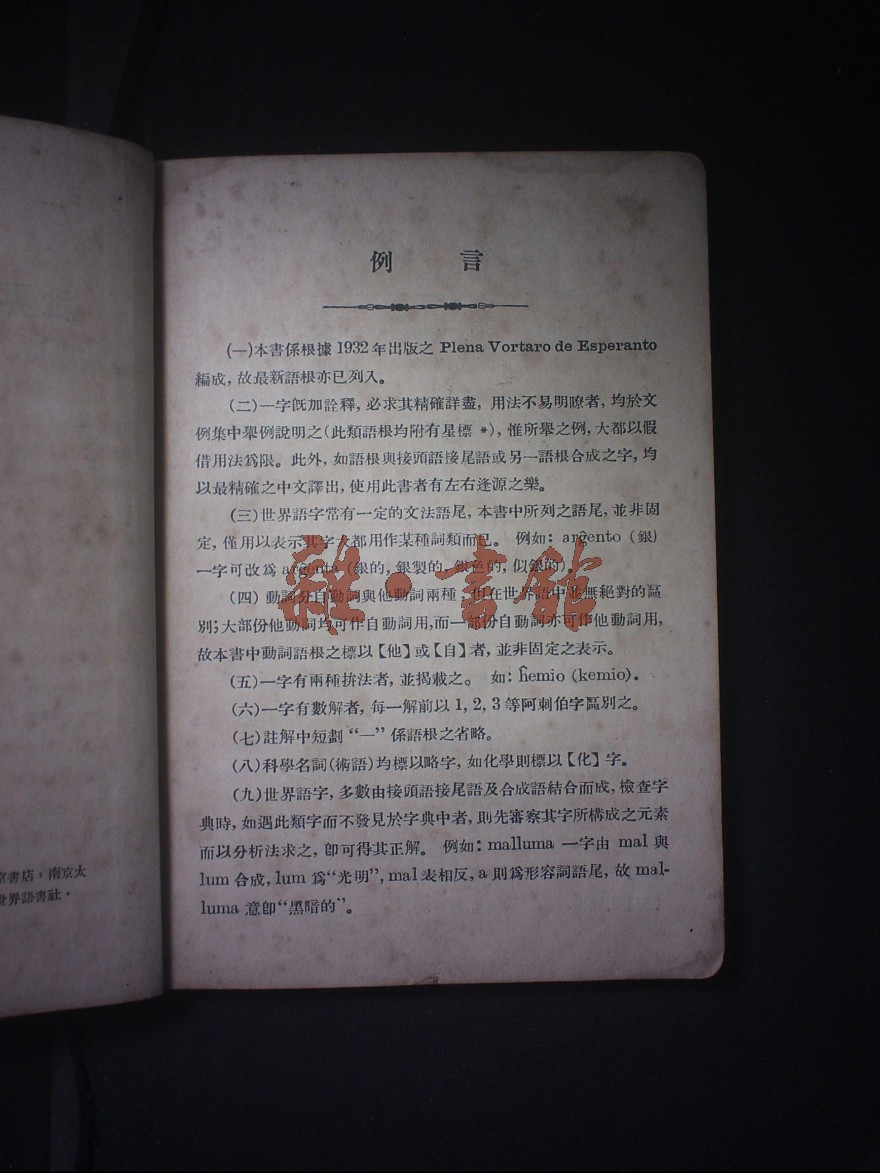 例言
(一)本書係根據 1932 年出版之 Plena Vortaro de Esperanto
編成, 故最新語根亦已列入。
(二)一字旣加詮釋, 必求其精確詳盡, 用法不易明瞭者, 均於文
例集中舉例說明之(此類語根均附有星標 *), 惟所舉之例, 大都以假
借用法爲限。 此外, 如語根與接頭語接尾語或另一語根合成之字, 均
以最精確之中文譯出, 使用此書者有左右逢源之樂。
(三)世界語字常有一定的文法語尾, 本書中所列之語尾, 並非固
定, 僅用以表示其字大都用作某種詞類而已。 例如: arĝento (銀)
一字可改爲 arĝenta (銀的, 銀製的, 銀色的, 似銀的)。
(四) 動詞分自動詞與他動詞兩種; 但在世界語中並無絕對的區
別; 大部份他動詞均可作自動詞用, 而一部份自動詞亦可作他動詞用,
故本書中動詞語根之標以【他】或【自】者, 並非固定之表示。
(五)一字有兩種拚法者, 並揭載之。 如: ĥemio (kemio).
(六)一字有數解者, 每一解前以 1, 2, 3 等阿剌伯字區別之。
(七)註解中短劃 “—” 係語根之省略。
(八)科學名詞(術語)均標以略字, 如化學則標以【化】字。
(九)世界語字, 多數由接頭語接尾語及合成語結合而成, 檢查字
典時, 如遇此類字而不發見於字典中者, 則先審察其字所構成之元素
而以分析法求之, 卽可得其正解。 例如: malluma 一字由 mal 與
lum 合成, lum 爲“光明”, mal 表相反, a 則爲形容詞語尾, 故 mal-
luma 意卽“黑暗的”。
書店，南京太
世界語書社．
雜·書館